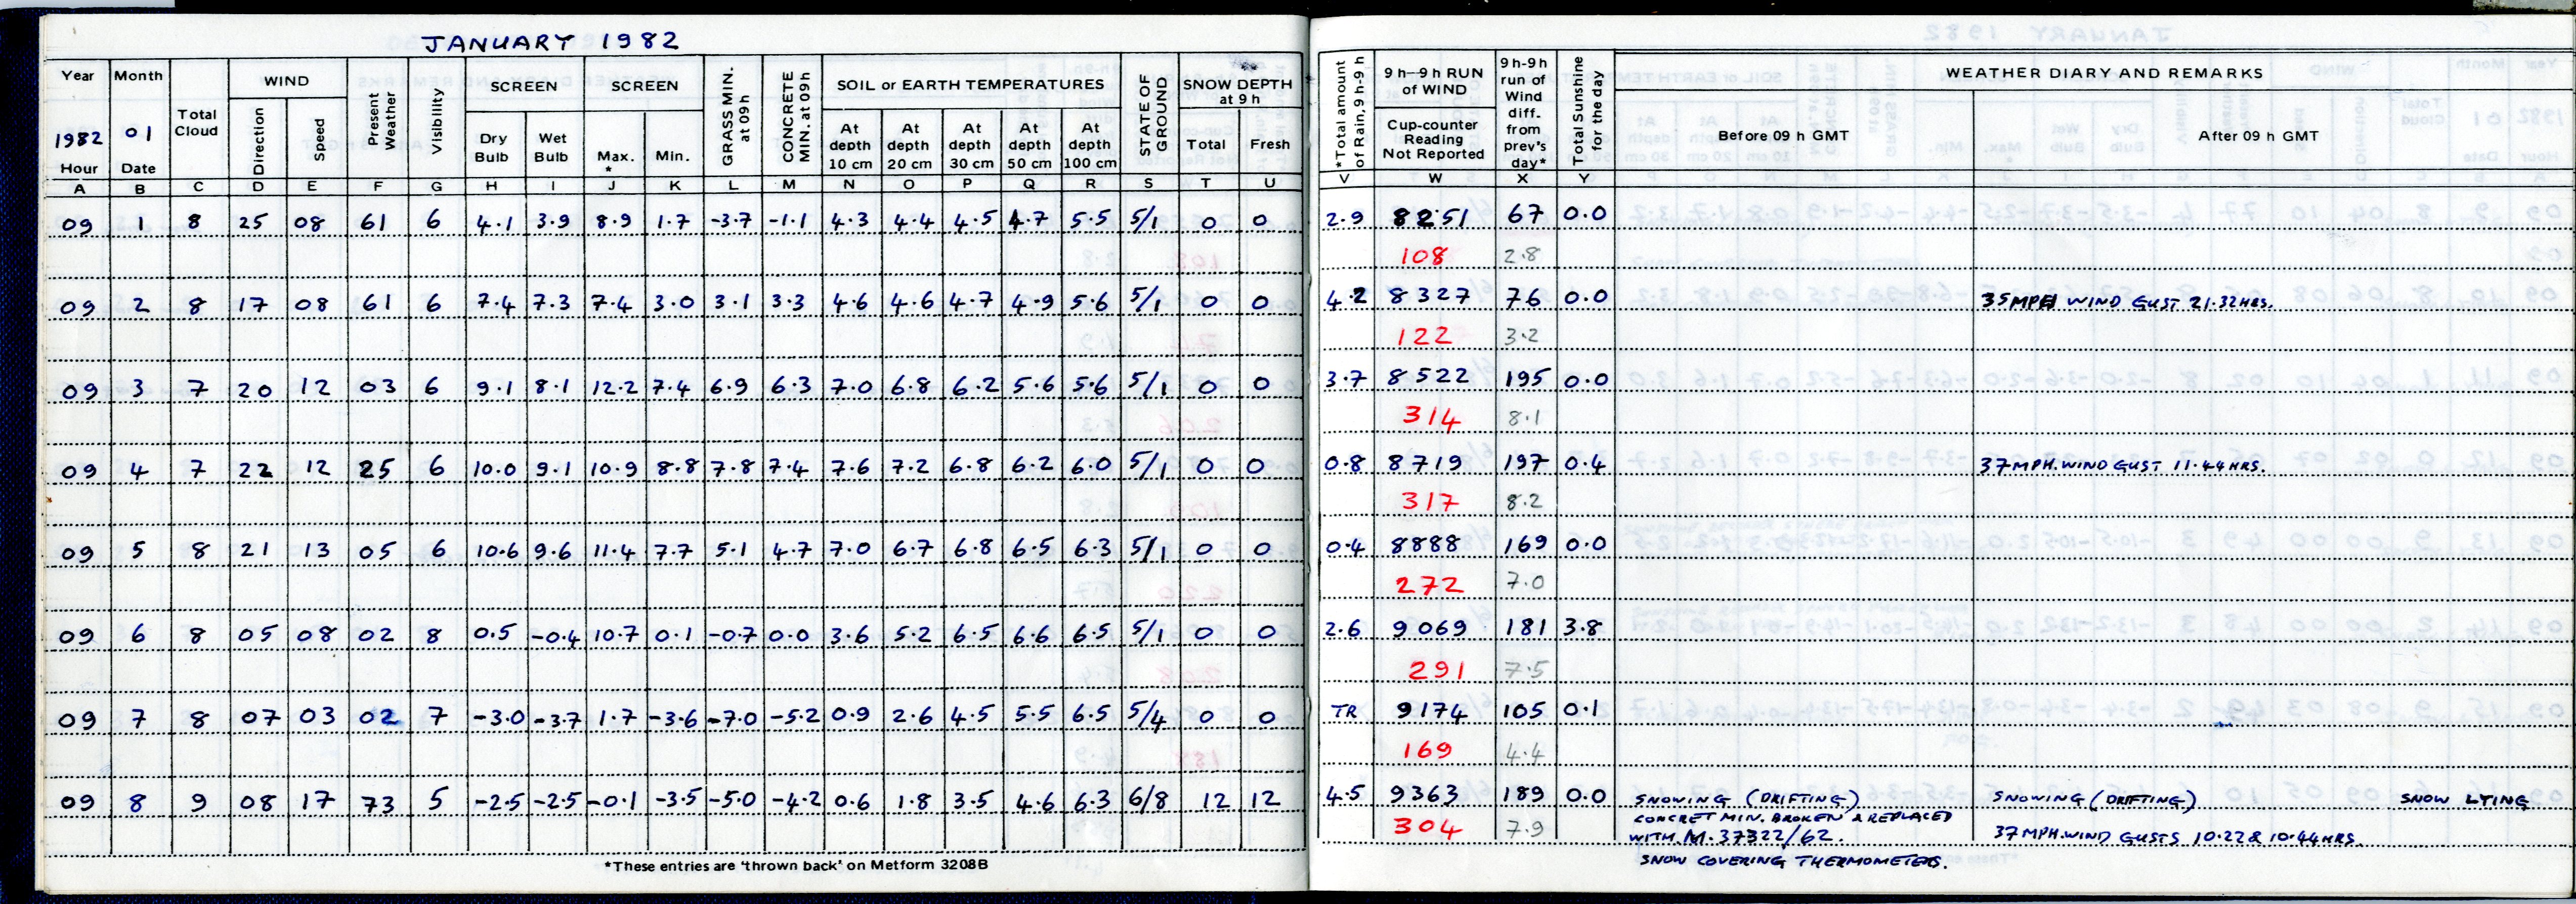 JANUARY 1982
Year Month Total Cloud WIND Present Weather Visibility SCREEN SCREEN GRASS MIN. at 09h CONCRETE MIN. at 09h SOIL or EARTH TEMPERATURES STATE OF GROUND SNOW DEPTH at 9 h
1982 01 Direction Speed Dry Bulb Wet Bulb Max. * Min. At depth 10 cm At depth 20 cm At depth 30 cm At depth 50 cm At depth 100 cm Total Fresh
Hour Date
A B C D E F G H I J K L M N O P Q R S T U
09 1 8 25 08 61 6 4.1 3.9 8.9 1.7 -3.7 -1.1 4.3 4.4 4.5 4.7 5.5 5/1 0 0
09 2 8 17 08 61 6 7.4 7.3 7.4 3.0 3.1 3.3 4.6 4.6 4.7 4.9 5.6 5/1 0 0
09 3 7 20 12 03 6 9.1 8.1 12.2 7.4 6.9 6.3 7.0 6.8 6.2 5.6 5.6 5/1 0 0
09 4 7 22 12 25 6 10.0 9.1 10.9 8.8 7.8 7.4 7.6 7.2 6.8 6.2 6.0 5/1 0 0
09 5 8 21 13 05 6 10.6 9.6 11.4 7.7 5.1 4.7 7.0 6.7 6.8 6.5 6.3 5/1 0 0
09 6 8 05 08 02 8 0.5 -0.4 10.7 0.1 -0.7 0.0 3.6 5.2 6.5 6.6 6.5 5/1 0 0
09 7 8 07 03 02 7 -3.0 -3.7 1.7 -3.6 -7.0 -5.2 0.9 2.6 4.5 5.5 6.5 5/4 0 0
09 8 9 08 17 73 5 -2.5 -2.5 -0.1 -3.5 -5.0 -4.2 0.6 1.8 3.5 4.6 6.3 6/8 12 12
*These entries are 'thrown back' on Metform 3208B
*Total amount of Rain, 9 h-9 h 9 h—9 h RUN of WIND 9 h-9h run of Wind diff. from prev's day* Total Sunshine for the day WEATHER DIARY AND REMARKS
Cup-counter Reading Not Reported Before 09 h GMT After 09 h GMT
V W X Y
2.9 8251 67 0.0
108 2.8
4.2 8327 76 0.0 35MPH WIND GUST 21.32HRS.
122 3.2
3.7 8522 195 0.0
314 8.1
0.8 8719 197 0.4 37MPH.WIND GUST 11.44HRS.
317 8.2
0.4 8888 169 0.0
272 7.0
2.6 9069 181 3.8
291 7.5
TR 9174 105 0.1
169 4.4
4.5 9363 189 0.0 SNOWING (DRIFTING) SNOWING (DRIFTING) SNOW LYING
CONCRET MIN. BROKEN & REPLACED
304 7.9 WITH.M.37322/62. 37MPH.WIND GUSTS 10.22 & 10.44HRS.
SNOW COVERING THERMOMETERS.